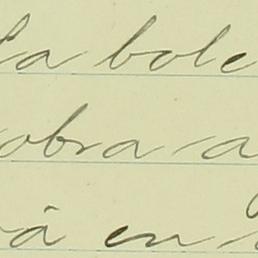 la bole
obra a
vá en